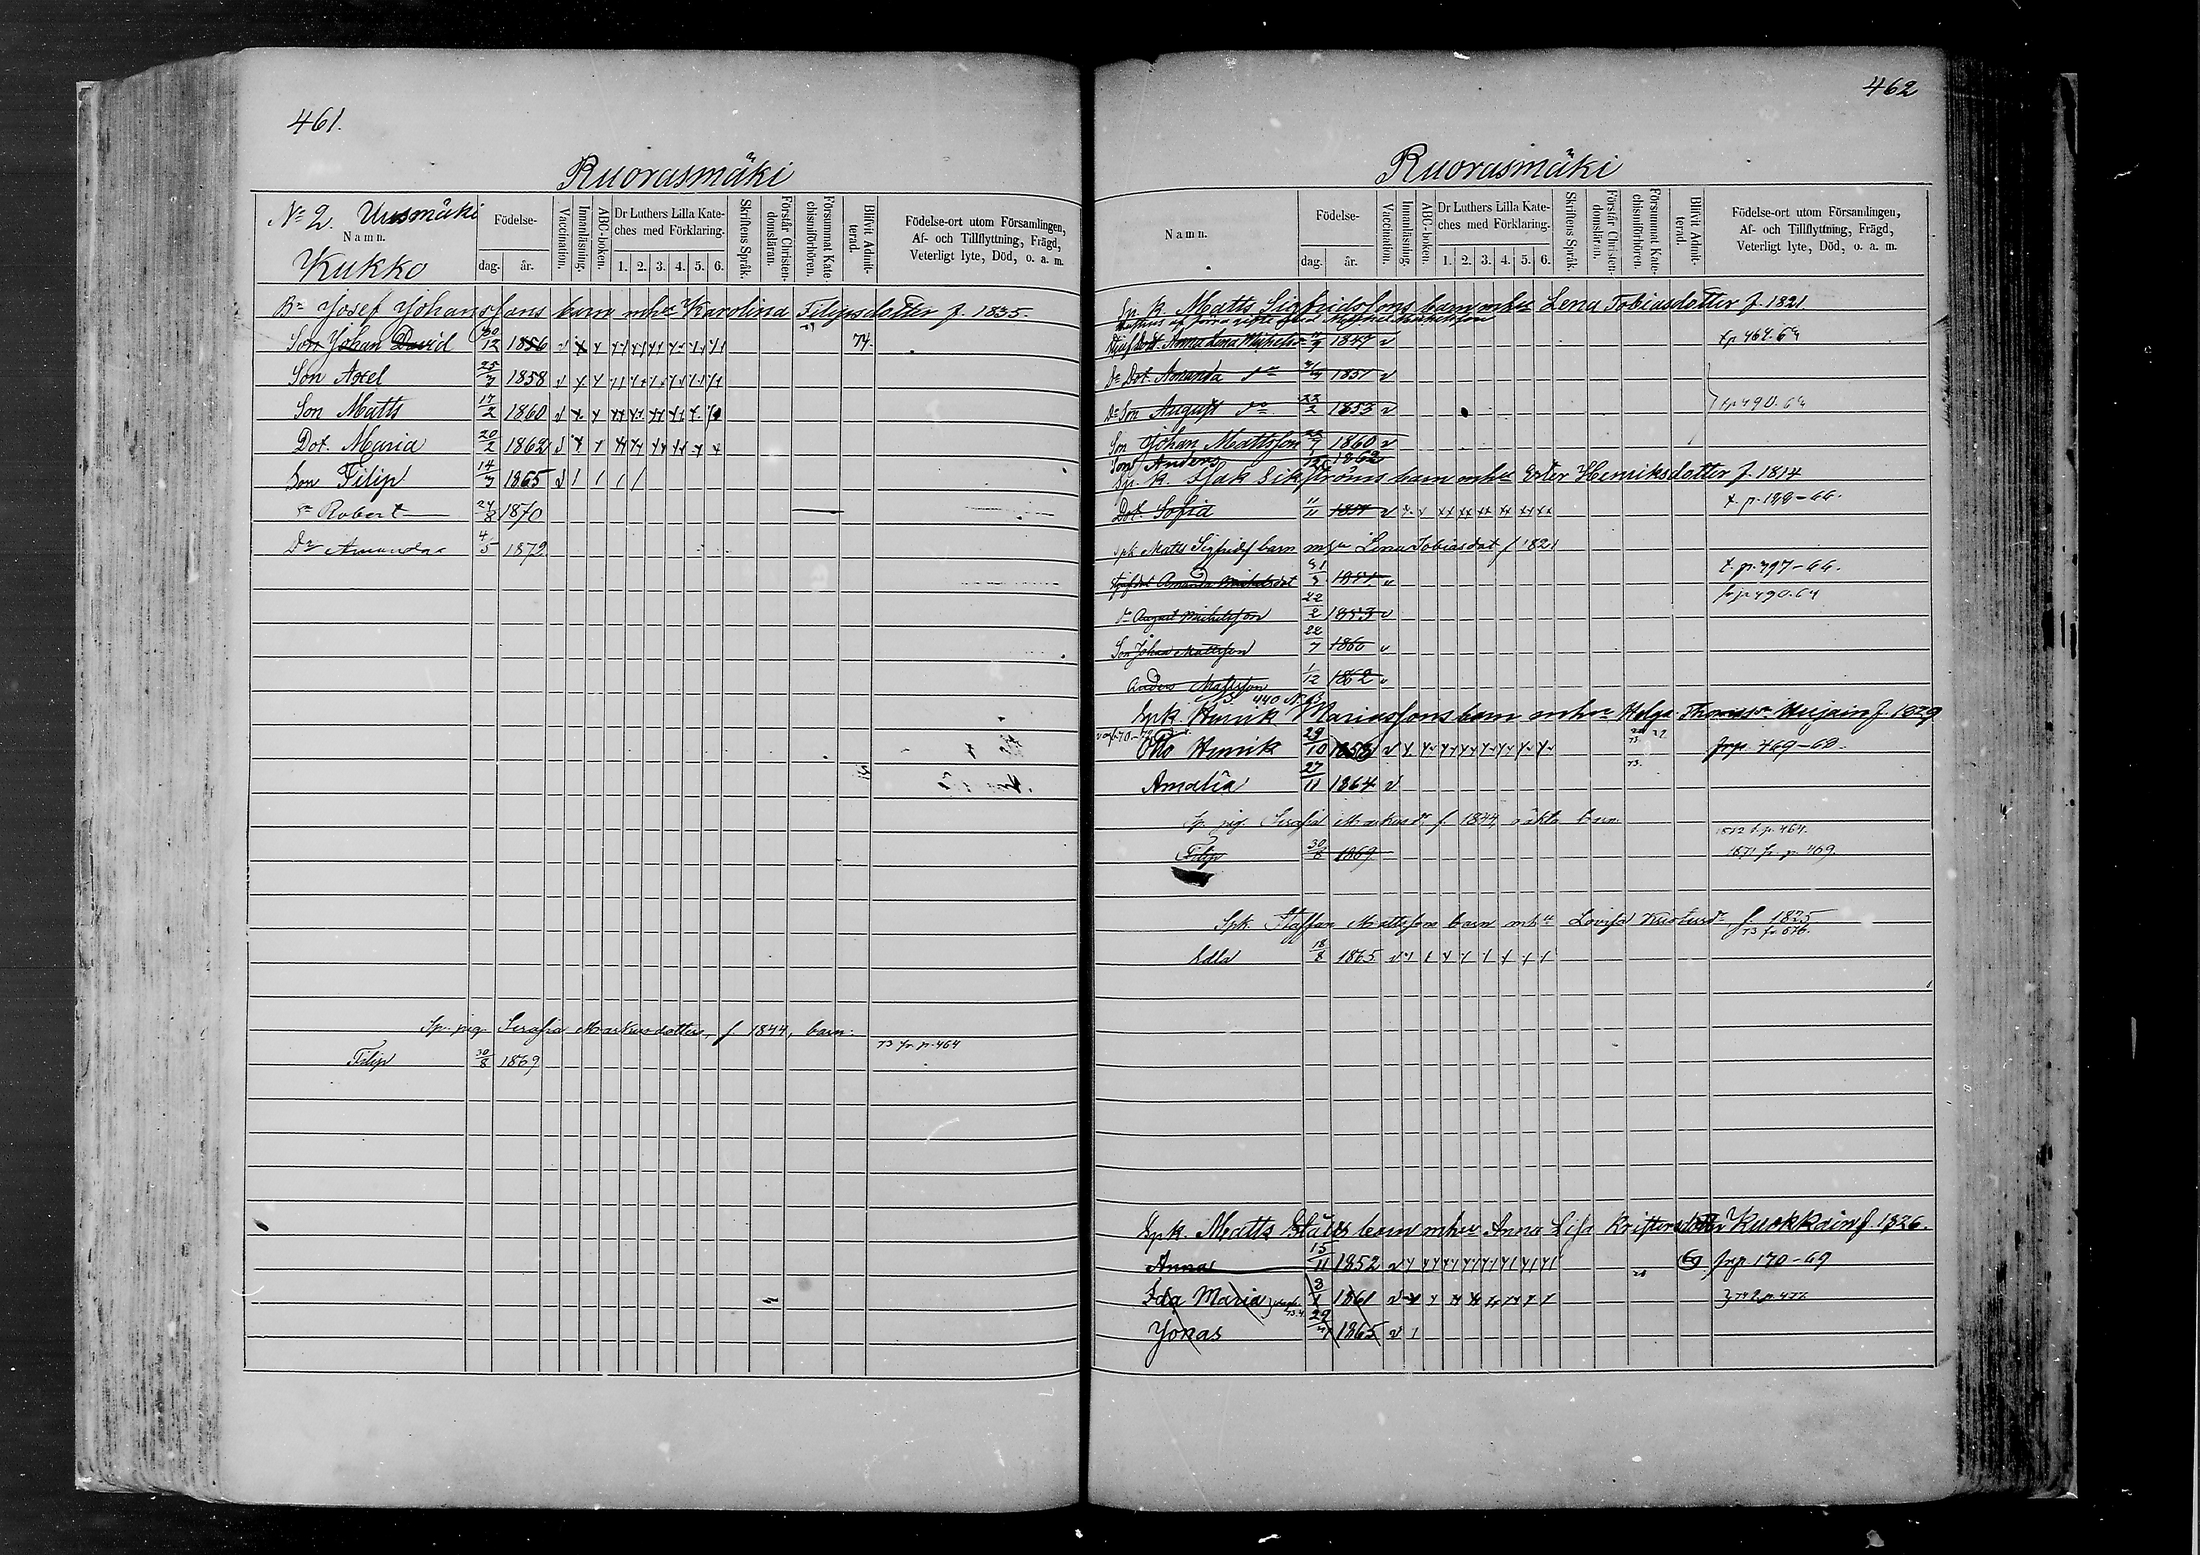 461.
Ruorasmäki
No 2. Uusmäki
Kukko
Namn.
Födelse-
dag.
år.
Vaccination.
Innanläsning.
ABC-boken.
Dr Luthers Lilla Kate-
ches med Förklaring.
1. 2. 3. 4. 5. 6.
Skriftens Språk.
Förstår Christen-
domsläran.
Försummat Kate-
chismiförhören.
Blifvit Admit-
terad.
Födelse-ort utom Församlingen,
Af- och Tillflyttning, Frägd,
Veterligt lyte, Död, o. a. m.
Bn Josef Johanssons barn mhu Karolina Filipsdotter f. 1835.
Son Johan David 30/12 1856 74.
Son Axel 25/3 1858
Son Matts 17/2 1860
Dot. Maria 20/2 1862
Son Filip 14/3 1865
Robert 24/8 1870
Dr Amanda 4/5 1872
Sp. pig. Serafia Markusdotters, f 1844, barn.
73 fr p. 464
Filip 30/8 1869
462
Ruorasmäki
Namn.
Födelse-
dag.
år.
Vaccination.
Innanläsning.
ABC-boken.
Dr Luthers Lilla Kate-
ches med Förklaring.
1. 2. 3. 4. 5. 6.
Skriftens Språk.
Förstår Christen-
domsläran.
Försummat Kate-
chismiförhören.
Blifvit Admit-
terad.
Födelse-ort utom Församlingen,
Af- och Tillflyttning, Frägd,
Veterligt lyte, Död, o. a. m.
Sp. k. Matts Sigfridssons barn mhu Lena Tobiasdotter f. 1821
Anna Lena 1847
Dr Dot. Amanda 1851
Dr Son August 22/2 1853
Son Johan Mattsson 22/7 1860
Son Anders 1/12 1862
Sp. k. Isak Sikströms barn mhu Ester Henriksdotter f. 1814
Dot. Sofia 11/11 t. p. 199-66.
Spk Matts Sigfrids barn mhu Lena Tobiasdot f 1821
Amanda Michelsdot 1851 t. p. 797-66.
August Michelsson 22/2 1853
Son Johan Mattsson 22/7 1860
Anders Mattsson 1/12 1862
Spk. Henrik Mariassons barn mhu Helga f. 1829
Otto Henrik 29/10 1858 frp. 469-68.
Amalia 27/11 1864
Sp. pig. Serafia Markusdr f. 1844 oäkta barn
1872 t. p. 464.
Filip 30/8 1869 1871 fr. p. 469.
Spk. Staffan Mattsson barn mhu Lovisa f. 1825
73 fr. 576.
Edla 18/8 1865
Spk. Matts barn mhu Anna Lisa Kristersdotter Kuokkain f. 1826.
Anna 15/11 1852 frp 170-69
Ida Maria 8/1 1861
Jonas 29 1865